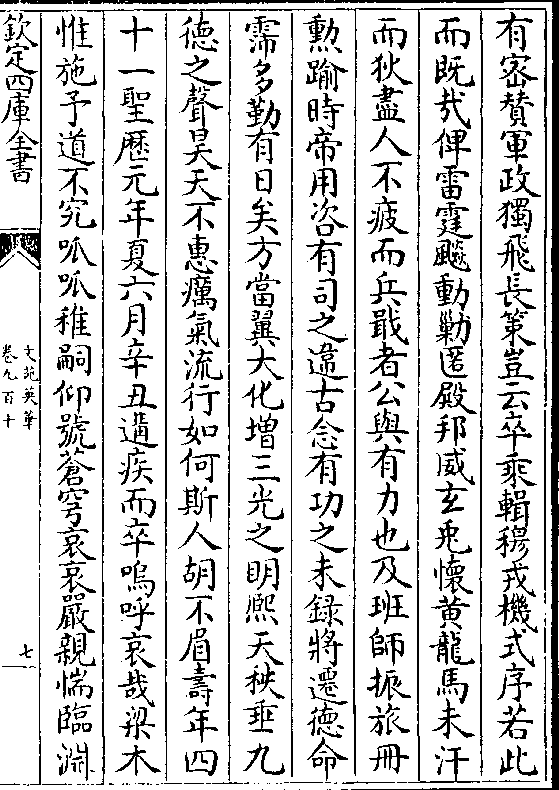 有密賛軍政獨飛長策豈云卒乘輯穆戎機式序若此
而既𢦤俾雷霆飈動勦匿殿邦威玄兎懐黄龍馬未汗
而狄盡人不疲而兵戢者公與有力也及班師振旅冊
勲踰時帝用咨有司之違古念有功之未録將遷徳命
霈多勤有日矣方當翼大化增三光之眀熈天秧垂九
徳之聲昊天不惠癘氣流行如何斯人胡不眉壽年四
十一聖歴元年夏六月辛丑遘疾而卒嗚呼哀哉梁木
惟施予道不究呱呱稚嗣仰號蒼穹哀哀嚴親惴臨淵
欽定四庫全書
文苑英華
卷九百十
七